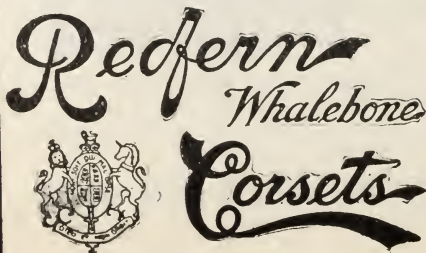 Redfern
Whalebone
Corsets